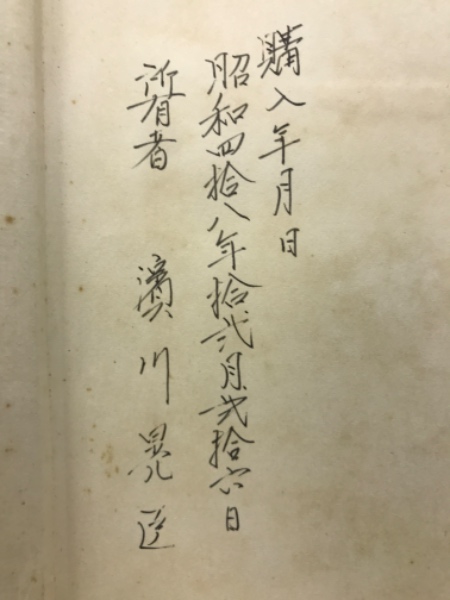 購入年月日
昭和四拾八年拾弐月弐拾六日
所有者 濱川晃臣